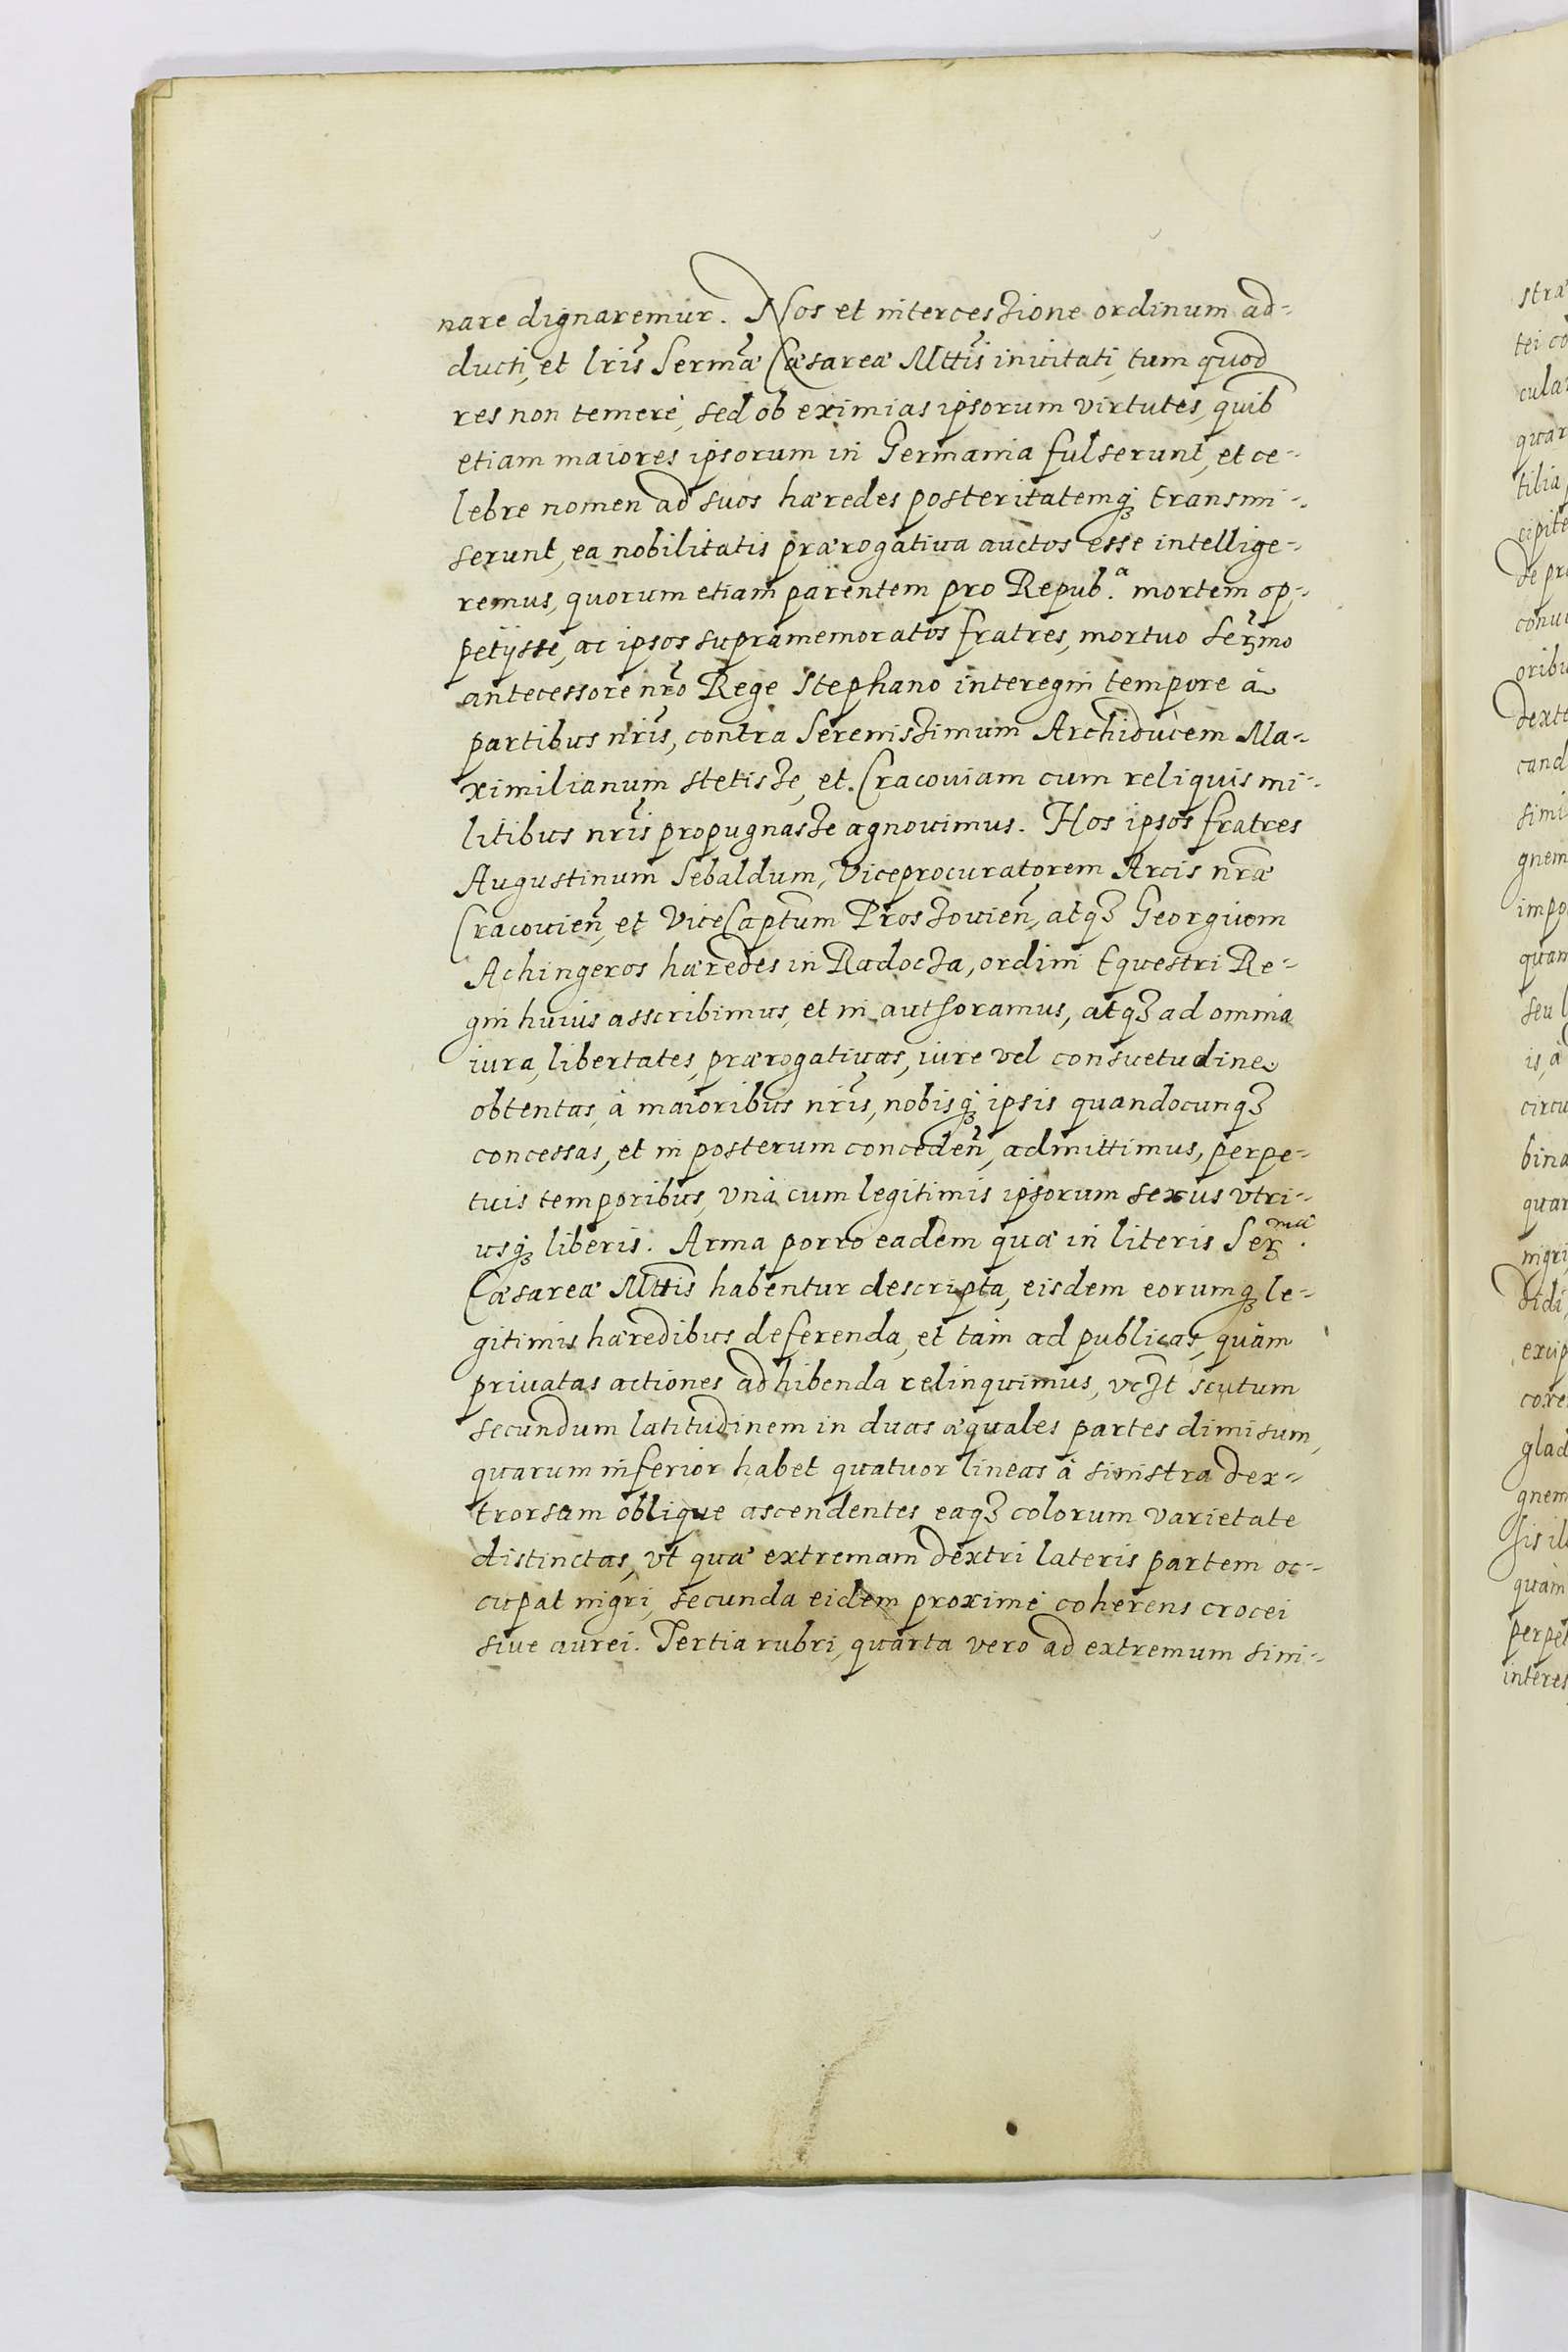 nare dignaremur. Nos et intercessione ordinum ad-
ducti, et lris Sermæ Cæsareæ Mttis inuitati, tum quod
res non temerè, sed ob eximias ipsorum virtutes, quib
etiam maiores ipsorum in Germania fulserunt, et ce-
lebre nomen ad suos hæredes posteritatemq; transmi-
serunt, ea nobilitatis prærogatiua auctos esse intellige-
remus, quorum etiam parentem pro Repub.ª mortem op-
petijsse, ac ipsos supramemoratos fratres, mortuo Sermo
antecessore nro Rege Stephano interegni tempore à
partibus nris, contra Serenissimum Archiducem Ma-
ximilianum stetisse, et Cracouiam cum reliquis mi-
litibus nris propugnasse agnouimus. Hos ipsos fratres
Augustinum Sebaldum, Viceprocuratorem Arcis nræ
Cracouien, et ViceCaptum Prossouien, atq3 Georgium
Achingeros hæredes in Radocza, ordini Equestri Re-
gni huius asscribimus, et in authoramus, atq3 ad omnia
iura, libertates, prærogatiuas, iure vel consuetudine
obtentas, à maioribus nris, nobisq; ipsis quandocunq3
concessas, et in posterum conceden, admittimus, perpe-
tuis temporibus, vnà cum legitimis ipsorum sexus vtri-
usq; liberis. Arma porro eadem quæ in literis Ser.mæ
Cæsareæ Mttis habentur descripta, eisdem eorumq; le-
gitimis hæredibus deferenda, et tàm ad publicas, quàm
priuatas actiones adhibenda relinquimus, vczt scutum
secundum latitudinem in duas æquales partes dimisum,
quarum inferior habet quatuor lineas à sinistra dex-
trorsam oblique ascendentes eaq3 colorum varietate
distinctas, vt quæ extremam dextri lateris partem oc-
cupat nigri, secunda eidem proximè coherens crocei
siue aurei. Tertia rubri, quarta vero ad extremum sini-